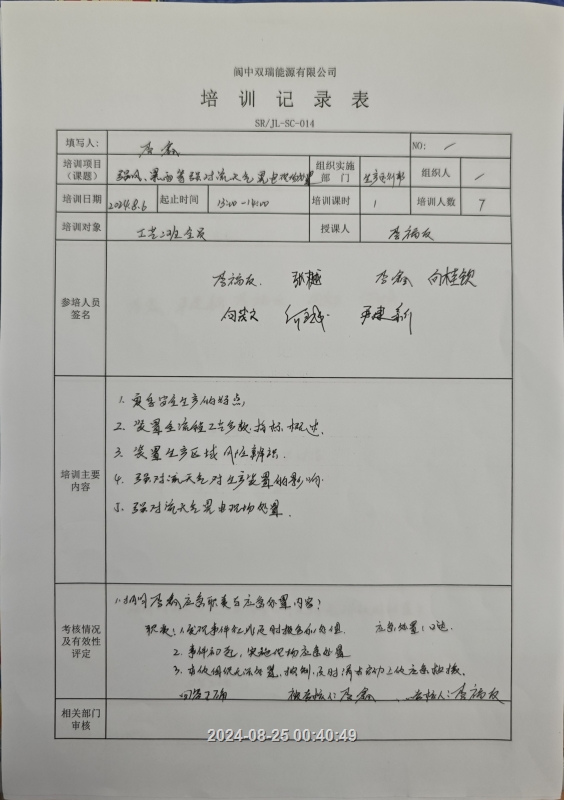 阆中双瑞能源有限公司
培 训 记 录 表
SR/JL-SC-014
填写人： 李鑫 NO： /
培训项目（课题） 强风、暴雨等强对流天气晃电现场处置 组织实施部门 生产运行部 组织人 /
培训日期 2024.8.6 起止时间 13:00-14:00 培训课时 1 培训人数 7
培训对象 工艺二班全员 授课人 李福友
参培人员签名
李福友 张樾 李鑫 向桂钦
培训主要内容
1. 夏季安全生产的特点
2. 装置全流程工艺参数、指标、概述.
3. 装置生产区域风险辨识.
4. 强对流天气对生产装置的影响.
5. 强对流天气晃电现场处置.
考核情况及有效性评定
1. 提问李鑫应急职责与应急处置内容?
职责: 1. 发现事件扩大及时报告和向值 应急处置:口述
2. 事件初起, 实施现场应急处置
回答正确 被考核人: 李鑫 考核人: 李福友
相关部门审核
2024-08-25 00:40:49